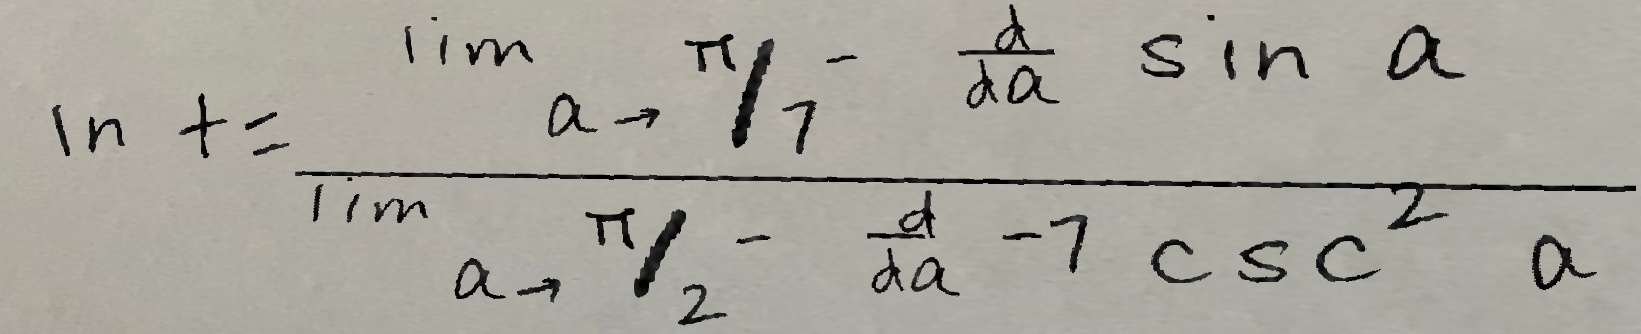 ln t = \frac{\lim_{a \to \pi/7^-} \frac{d}{da} \sin a}{\lim_{a \to \pi/2^-} \frac{d}{da} -7 \csc^2 a}